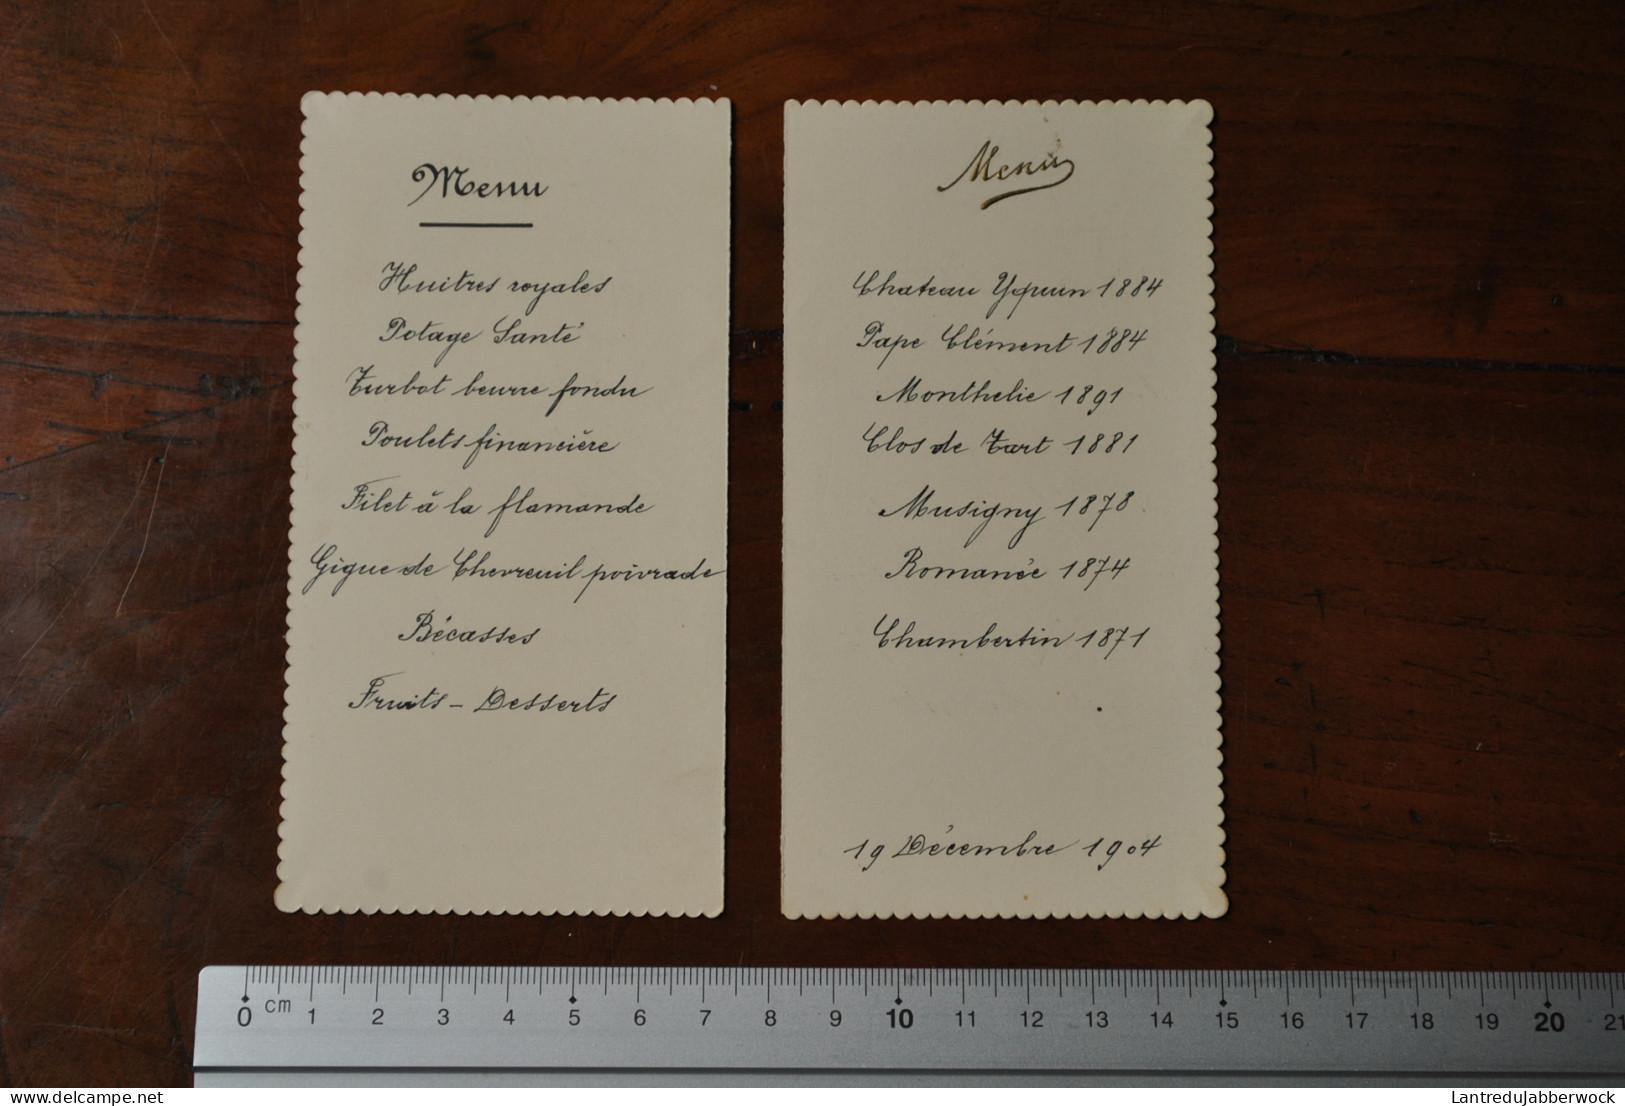 Menu
Huitres royales
Potage Santé
Turbot beurre fondu
Poulets financière
Filet à la flamande
Gigue de Chevreuil poivrade
Bécasses
Fruits - Desserts
Menu
Chateau Yquem 1884
Pape Clément 1884
Monthelie 1891
Clos de Tart 1881
Musigny 1878
Romanée 1874
Chambertin 1871
19 Décembre 1904
0 cm 1 2 3 4 5 6 7 8 9 10 11 12 13 14 15 16 17 18 19 20 21
delcampe.net
LantreduJabberwock